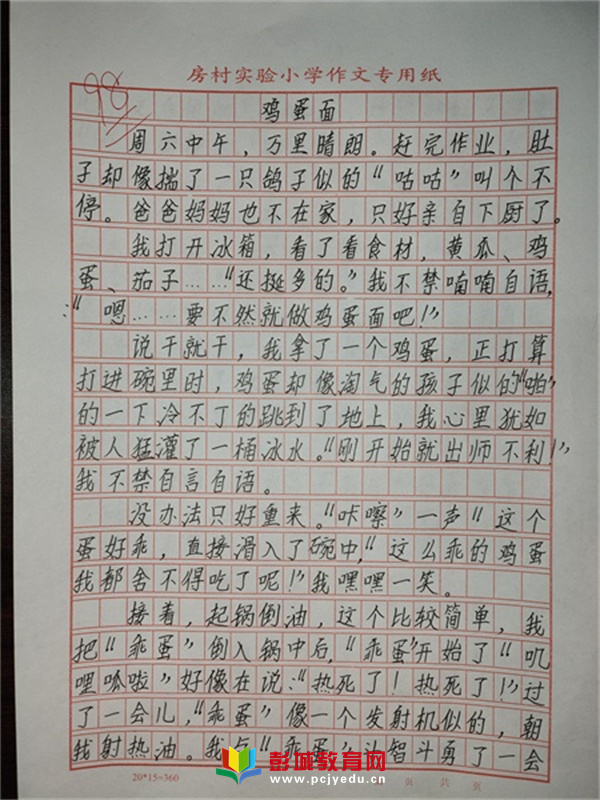 房村实验小学作文专用纸
98
鸡蛋面
周六中午，万里晴朗。赶完作业，肚
子却像揣了一只鸽子似的“咕咕”叫个不
停。爸爸妈妈也不在家，只好亲自下厨了。
我打开冰箱，看了看食材，黄瓜、鸡
蛋、茄子……“还挺多的。”我不禁喃喃自语，
：“嗯……要不然就做鸡蛋面吧！”
说干就干，我拿了一个鸡蛋，正打算
打进碗里时，鸡蛋却像淘气的孩子似的“啪”
的一下冷不丁的跳到了地上，我心里犹如
被人猛灌了一桶冰水。“刚开始就出师不利！”
我不禁自言自语。
没办法只好重来。“咔嚓”一声“这个
蛋好乖，直接滑入了碗中，“这么乖的鸡蛋
我都舍不得吃了呢！”我嘿嘿一笑。
接着，起锅倒油，这个比较简单，我
把“乖蛋”倒入锅中后，“乖蛋”开始了“叽
哩呱啦”好像在说：“热死了！热死了！”过
了一会儿，“乖蛋”像一个发射机似的，朝
我射热油。我与“乖蛋”斗智斗勇了一会
20*15=360
页 共 页
彭城教育网
www.pcjyedu.cn